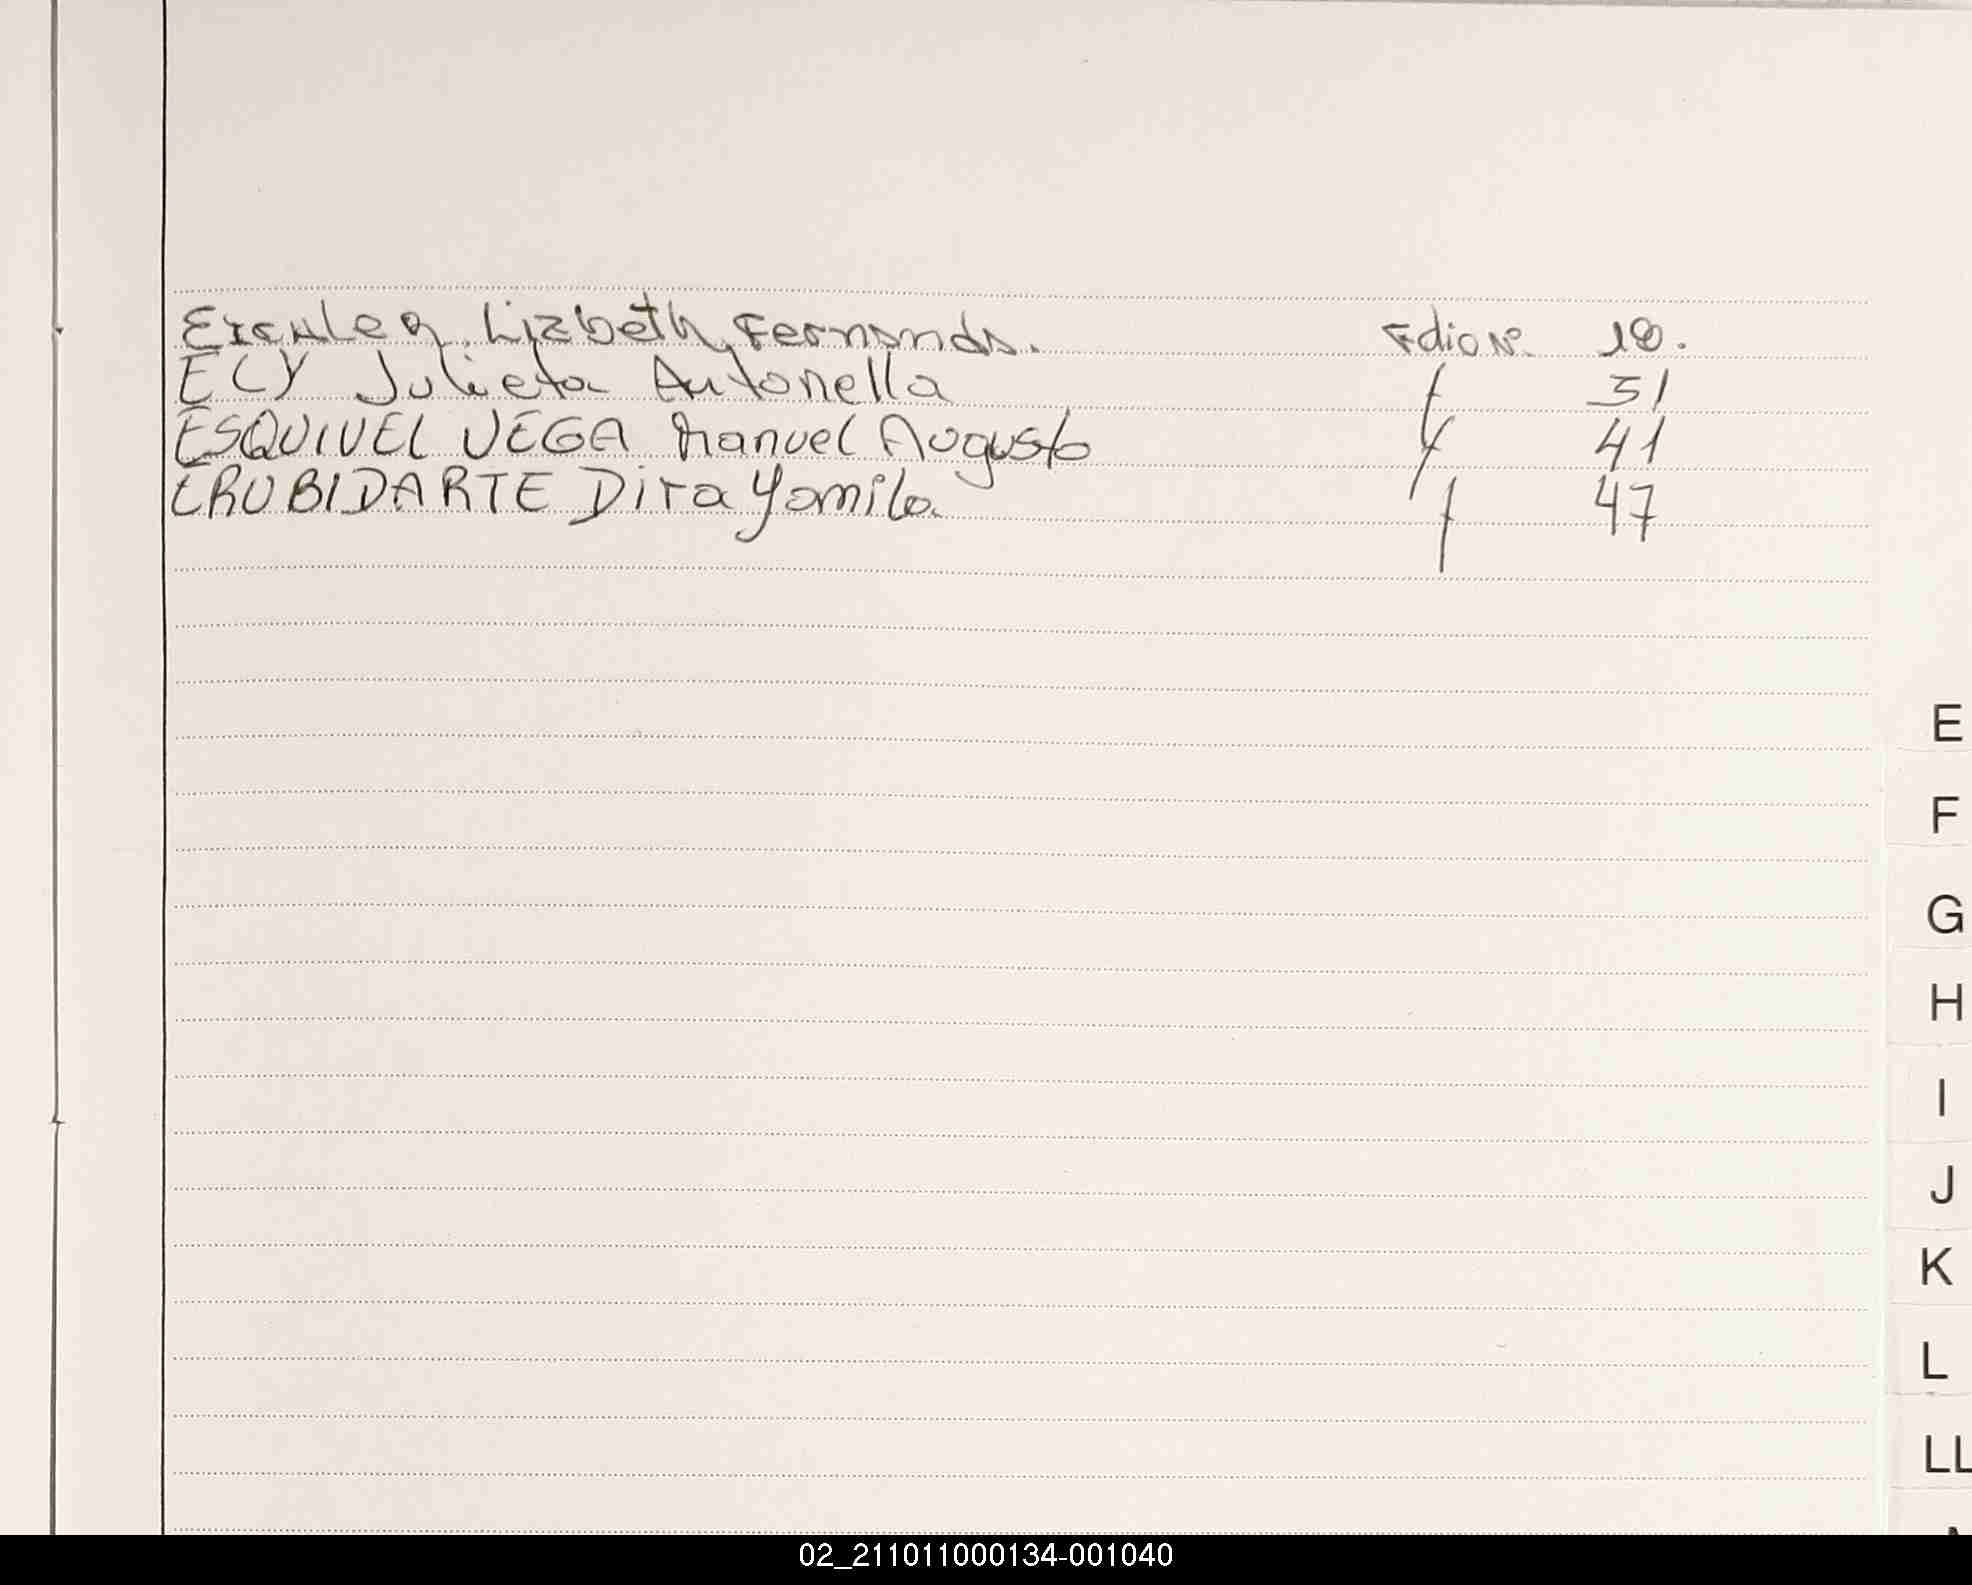 Eichler Lizbeth Fernanda. Folio Nº 18.
ELY Julieta Antonella f 31
ESQUIVEL VEGA Manuel Augusto f 41
ERUBIDARTE Dira Yamila f 47
E
F
G
H
I
J
K
L
LL
02_211011000134-001040